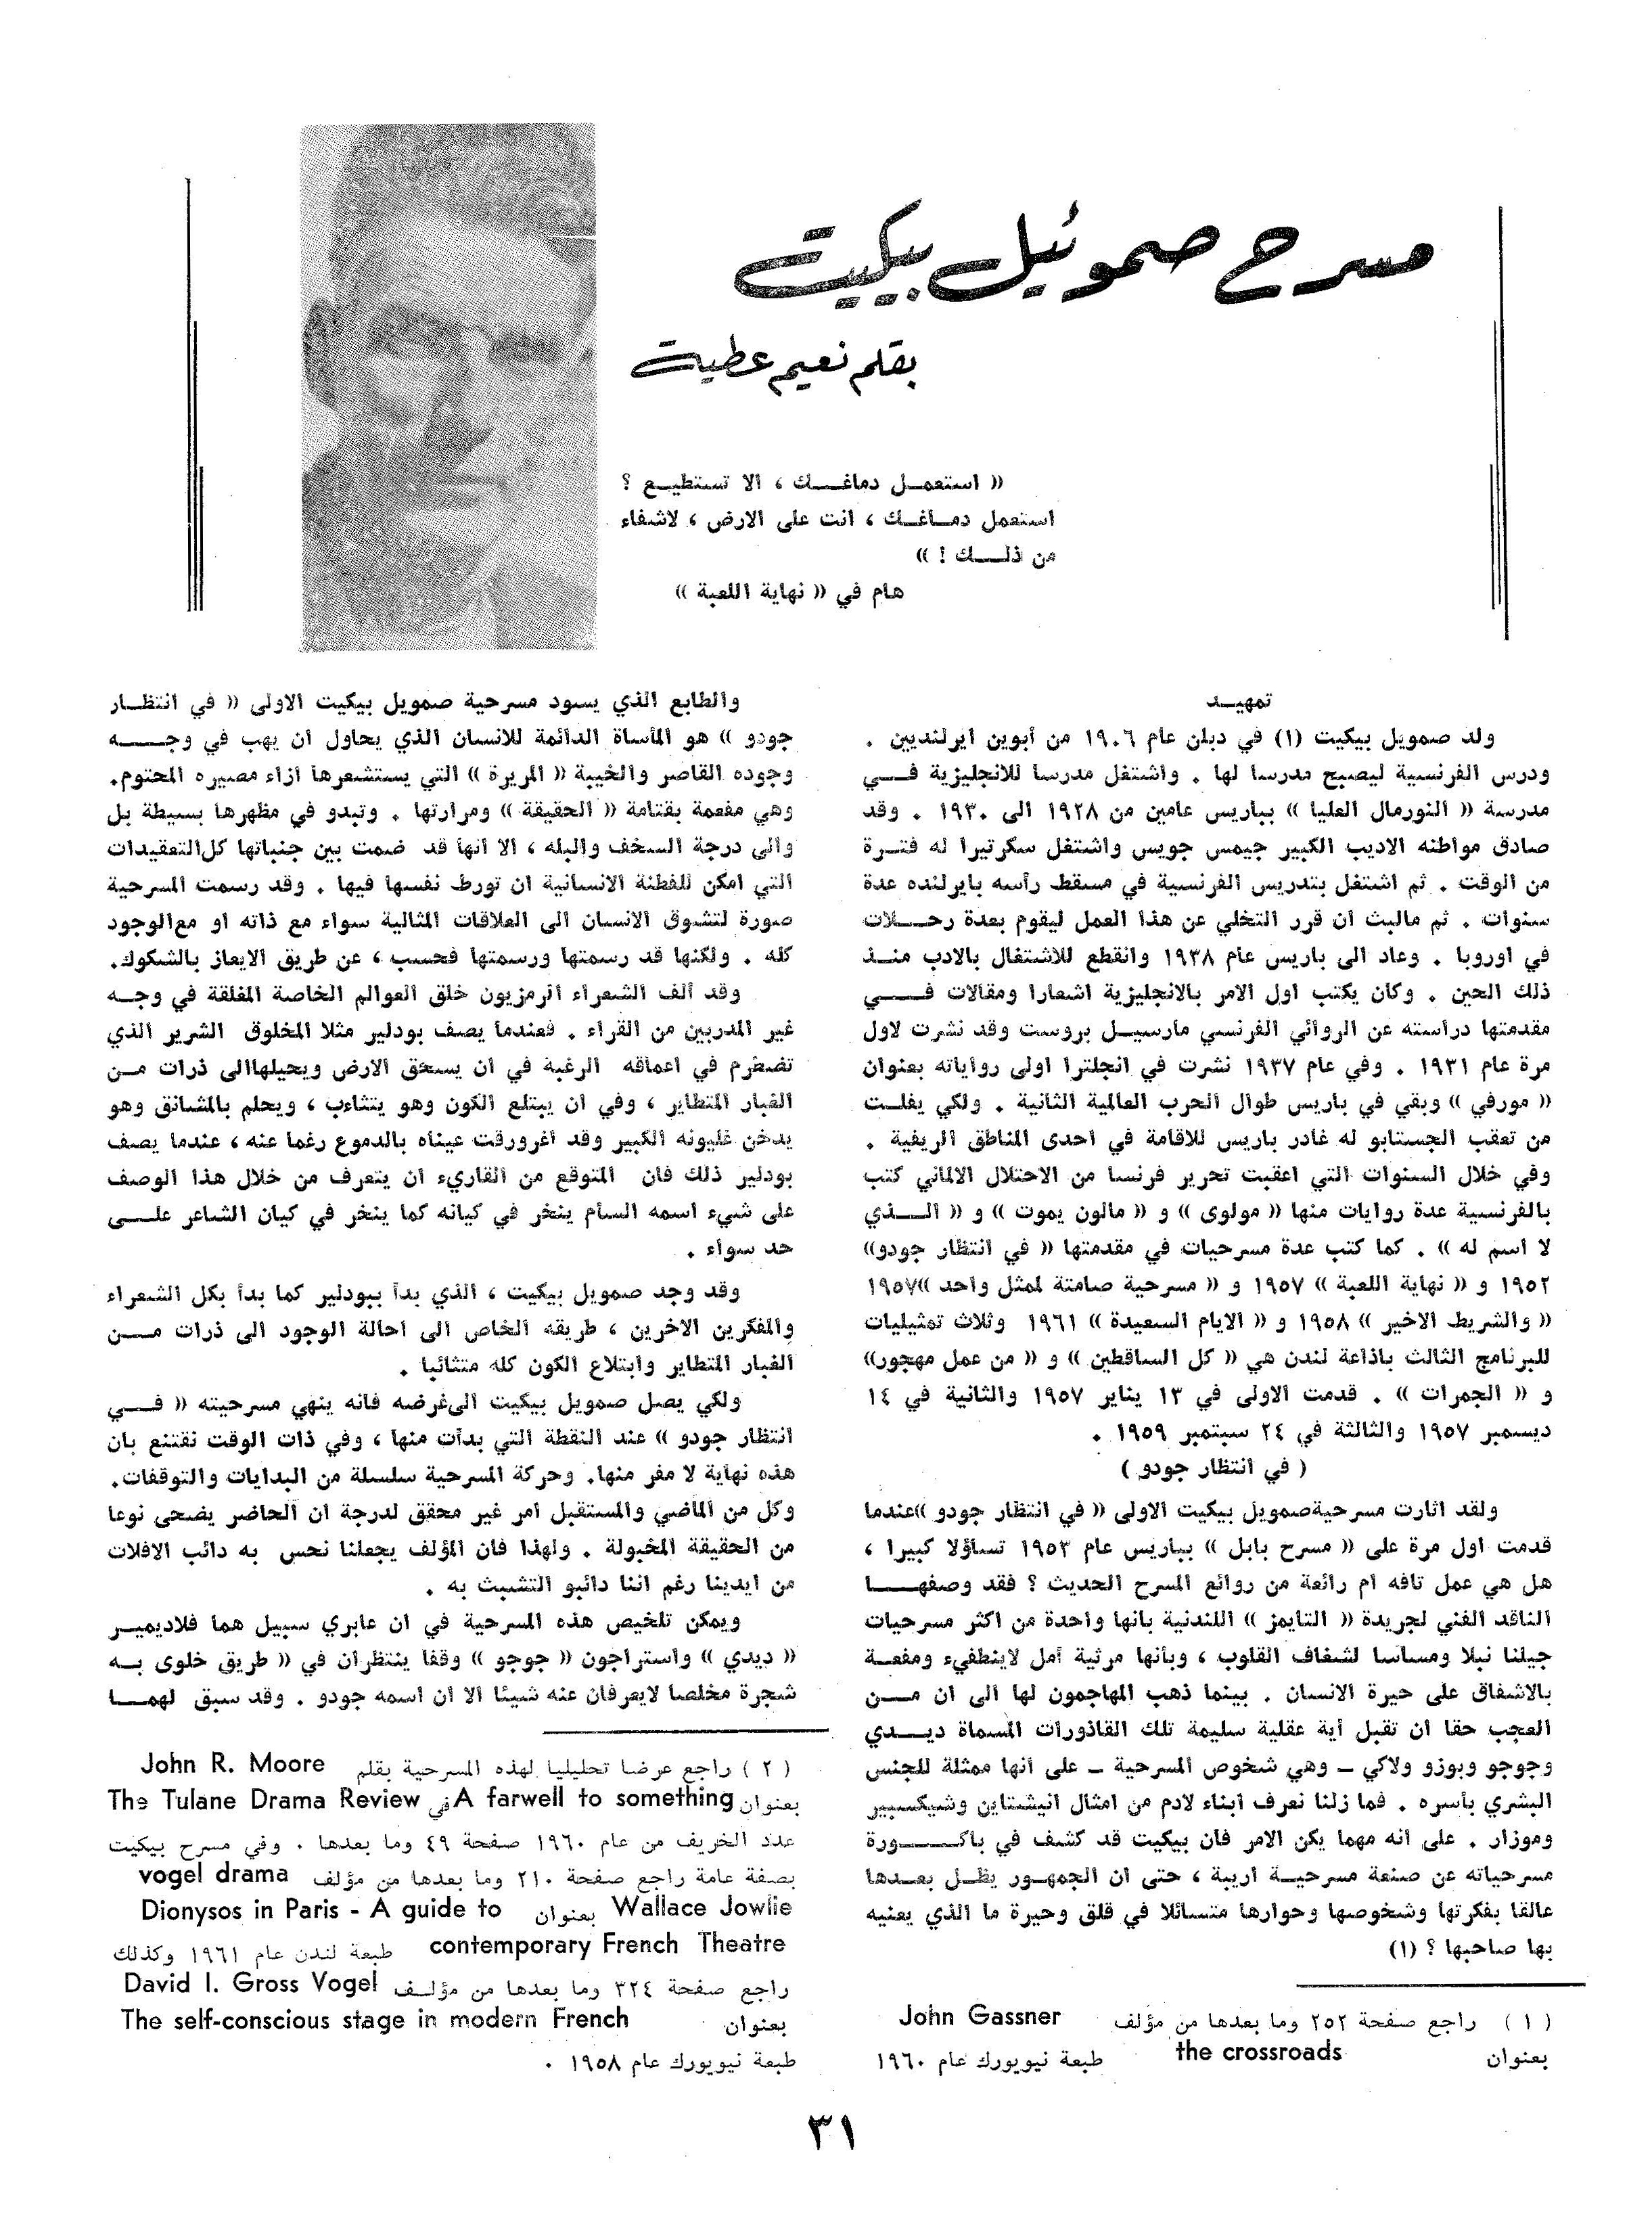 مسرح صموئيل بيكيت
بقلم نعيم عطية
« استعمـل دماغـك ، الا تستطيـع ؟
استعمل دمـاغـك ، انت على الارض ، لاشفاء
من ذلـك ! »
هام في « نهاية اللعبة »
تمهيـد
ولد صمويل بيكيت (١) في دبلن عام ١٩٠٦ من أبوين ايرلنديين .
ودرس الفرنسية ليصبح مدرسا لها . واشتغل مدرسا للانجليزية فـي
مدرسة « النورمال العليا » بباريس عامين من ١٩٢٨ الى ١٩٣٠ . وقد
صادق مواطنه الاديب الكبير جيمس جويس واشتغل سكرتيرا له فتـرة
من الوقت . ثم اشتغل بتدريس الفرنسية في مسقط رأسه بايرلنده عدة
سنوات . ثم مالبث ان قرر التخلي عن هذا العمل ليقوم بعدة رحـلات
في اوروبا . وعاد الى باريس عام ١٩٣٨ وانقطع للاشتغال بالادب منـذ
ذلك الحين . وكان يكتب اول الامر بالانجليزية اشعارا ومقالات فـي
مقدمتها دراسته عن الروائي الفرنسي مارسيـل بروست وقد نشرت لاول
مرة عام ١٩٣١ . وفي عام ١٩٣٧ نشرت في انجلترا اولى رواياته بعنوان
« مورفي » وبقي في باريس طوال الحرب العالمية الثانية . ولكي يفلـت
من تعقب الجستابو له غادر باريس للاقامة في احدى المناطق الريفية .
وفي خلال السنوات التي اعقبت تحرير فرنسا من الاحتلال الالماني كتب
بالفرنسية عدة روايات منها « مولوى » و « مالون يموت » و « الـذي
لا اسم له » . كما كتب عدة مسرحيات في مقدمتها « في انتظار جودو»
١٩٥٢ و « نهاية اللعبة » ١٩٥٧ و « مسرحية صامتة لممثل واحد »١٩٥٧
« والشريط الاخير » ١٩٥٨ و « الايام السعيدة » ١٩٦١ وثلاث تمثيليات
للبرنامج الثالث باذاعة لندن هي « كل الساقطين » و « من عمل مهجور»
و « الجمرات » . قدمت الاولى في ١٣ يناير ١٩٥٧ والثانية في ١٤
ديسمبر ١٩٥٧ والثالثة في ٢٤ سبتمبر ١٩٥٩ .
( في انتظار جودو )
ولقد اثارت مسرحيةصمويل بيكيت الاولى « في انتظار جودو »عندما
قدمت اول مرة على « مسرح بابل » بباريس عام ١٩٥٣ تساؤلا كبيرا ،
هل هي عمل تافه ام رائعة من روائع المسرح الحديث ؟ فقد وصفهـا
الناقد الفني لجريدة « التايمز » اللندنية بانها واحدة من اكثر مسرحيات
جيلنا نبلا ومساسا لشغاف القلوب ، وبأنها مرثية أمل لاينطفيء ومفعمة
بالاشفاق على حيرة الانسان . بينما ذهب المهاجمون لها الى ان مـن
العجب حقا ان تقبل أية عقلية سليمة تلك القاذورات المسماة ديـدي
وجوجو وبوزو ولاكي – وهي شخوص المسرحية – على انها ممثلة للجنس
البشري بأسره . فما زلنا نعرف ابناء لادم من امثال انيشتاين وشيكسبير
وموزار . على انه مهما يكن الامر فان بيكيت قد كشف في باكـورة
مسرحياته عن صنعة مسرحيـة اريبة ، حتى ان الجمهـور يظـل بعـدها
عالقا بفكرتها وشخوصها وحوارها متسائلا في قلق وحيرة ما الذي يعنيه
بها صاحبها ؟ (١)
( ١ ) راجع صفحة ٢٥٢ وما بعدها من مؤلف John Gassner
بعنوان the crossroads طبعة نيويورك عام ١٩٦٠
والطابع الذي يسود مسرحية صمويل بيكيت الاولى « في انتظـار
جودو » هو المأساة الدائمة للانسان الذي يحاول ان يهب في وجـه
وجوده القاصر والخيبة « المريرة » التي يستشعرها ازاء مصيره المحتوم.
وهي مفعمة بقتامة « الحقيقة » ومرارتها . وتبدو في مظهرها بسيطة بل
والى درجة السخف والبله ، الا انها قد ضمت بين جنباتها كل‌التعقيدات
التي امكن للفطنة الانسانية ان تورط نفسها فيها . وقد رسمت المسرحية
صورة لتشوق الانسان الى العلاقات المثالية سواء مع ذاته او مع‌الوجود
كله . ولكنها قد رسمتها ورسمتها فحسب ، عن طريق الايعاز بالشكوك.
وقد ألف الشعراء الرمزيون خلق العوالم الخاصة المغلقة في وجـه
غير المدربين من القراء . فعندما يصف بودلير مثلا المخلوق الشرير الذي
تضطرم في اعماقه الرغبة في ان يسحق الارض ويحيلهاالى ذرات مـن
الغبار المتطاير ، وفي ان يبتلع الكون وهو يتثاءب ، ويحلم بالمشانق وهو
يدخن غليونه الكبير وقد اغرورقت عيناه بالدموع رغما عنه ، عندما يصف
بودلير ذلك فان المتوقع من القاريء ان يتعرف من خلال هذا الوصف
على شيء اسمه السأم ينخر في كيانه كما ينخر في كيان الشاعر علـى
حد سواء .
وقد وجد صمويل بيكيت ، الذي بدأ ببودلير كما بدأ بكل الشعراء
والمفكرين الاخرين ، طريقه الخاص الى احالة الوجود الى ذرات مـن
الغبار المتطاير وابتلاع الكون كله متثائبا .
ولكي يصل صمويل بيكيت الى‌غرضه فانه ينهي مسرحيته « فـي
انتظار جودو » عند النقطة التي بدأت منها ، وفي ذات الوقت نقتنع بان
هذه نهاية لا مفر منها. وحركة المسرحية سلسلة من البدايات والتوقفات.
وكل من الماضي والمستقبل امر غير محقق لدرجة ان الحاضر يضحى نوعا
من الحقيقة المخبولة . ولهذا فان المؤلف يجعلنا نحس به دائب الافلات
من ايدينا رغم اننا دائبو التشبث به .
ويمكن تلخيص هذه المسرحية في ان عابري سبيل هما فلاديميـر
« ديدي » واستراجون « جوجو » وقفا ينتظران في « طريق خلوى بـه
شجرة مخلصا لايعرفان عنه شيئا الا ان اسمه جودو . وقد سبق لهمـا
( ٢ ) راجع عرضا تحليليا لهذه المسرحية بقلم John R. Moore
بعنوان A farwell to something في The Tulane Drama Review
عدد الخريف من عام ١٩٦٠ صفحة ٤٩ وما بعدها . وفي مسرح بيكيت
بصفة عامة راجع صفحة ٢١٠ وما بعدها من مؤلف vogel drama
Wallace Jowlie بعنوان Dionysos in Paris - A guide to
contemporary French Theatre طبعة لندن عام ١٩٦١ وكذلك
راجع صفحة ٣٢٤ وما بعدها من مؤلـف David I. Gross Vogel
بعنوان The self-conscious stage in modern French
طبعة نيويورك عام ١٩٥٨ .
٣١